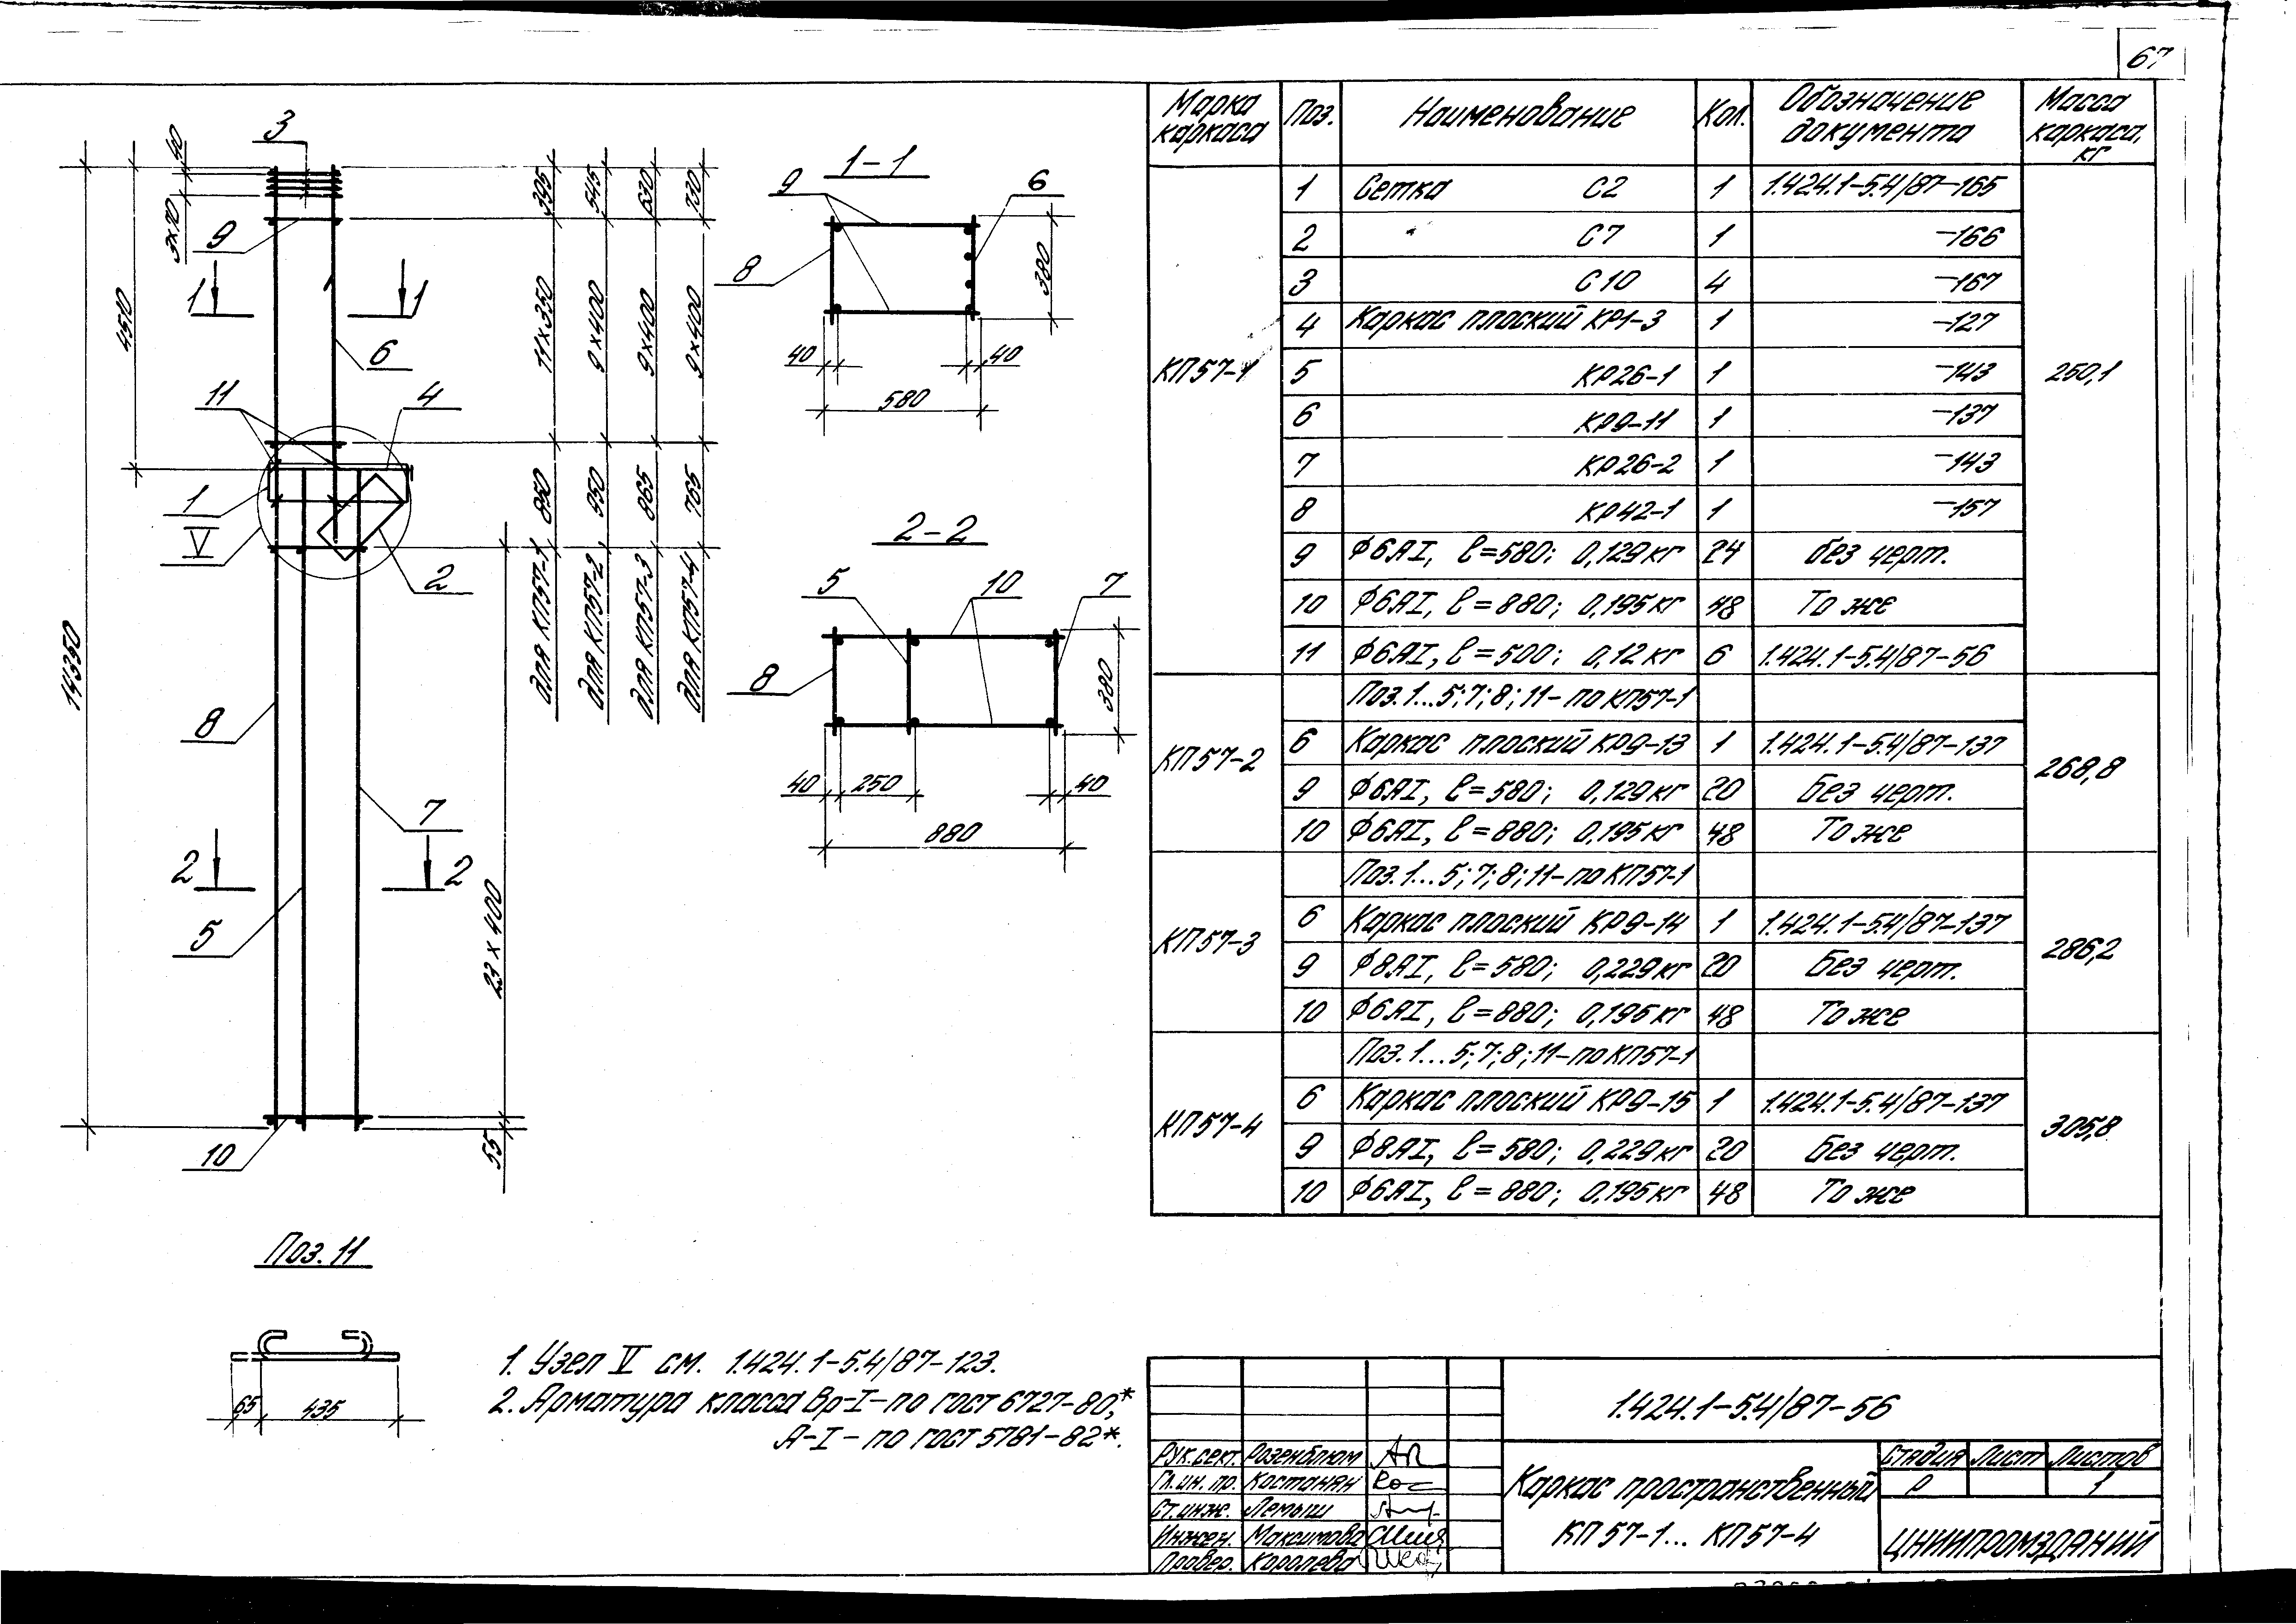 67
3
40
3х70
9
1 1
4510
6
11 4
1
V
2
14350
8
7
2 2
5
23 х 400
55
10
395 11х350 850 для КП57-1
545 9х400 950 для КП57-2
630 9х400 865 для КП57-3
730 9х400 765 для КП57-4
1-1
9 6
8
380
40 40
580
2-2
5 10 7
8
380
40 250 40
880
Поз. 11
65 435
1. Узел V см. 1.424.1-5.4/87-123.
2. Арматура класса Вр-I-по ГОСТ 6727-80,*
А-I-по ГОСТ 5781-82*.
Марка каркаса Поз. Наименование Кол. Обозначение документа Масса каркаса, кг
КП57-1 250,1
1 Сетка С2 1 1.424.1-5.4/87-165
2 С7 1 -166
3 С10 4 -167
4 Каркас плоский КР1-3 1 -127
5 КР26-1 1 -143
6 КР9-11 1 -137
7 КР26-2 1 -143
8 КР42-1 1 -157
9 Ф6АI, ℓ=580; 0,129кг 24 без черт.
10 Ф6АI, ℓ=880; 0,195кг 48 То же
11 Ф6АI, ℓ=500; 0,12кг 6 1.424.1-5.4/87-56
КП57-2 268,8
Поз.1...5;7;8;11-по КП57-1
6 Каркас плоский КР9-13 1 1.424.1-5.4/87-137
9 Ф6АI, ℓ=580; 0,129кг 20 Без черт.
10 Ф6АI, ℓ=880; 0,195кг 48 То же
КП57-3 286,2
Поз.1...5;7;8;11-по КП57-1
6 Каркас плоский КР9-14 1 1.424.1-5.4/87-137
9 Ф8АI, ℓ=580; 0,229кг 20 Без черт.
10 Ф6АI, ℓ=880; 0,195кг 48 То же
КП57-4 305,8
Поз.1...5;7;8;11-по КП57-1
6 Каркас плоский КР9-15 1 1.424.1-5.4/87-137
9 Ф8АI, ℓ=580; 0,229кг 20 Без черт.
10 Ф6АI, ℓ=880; 0,195кг 48 То же
1.424.1-5.4/87-56
Рук.сект. Розенблюм
Гл.ин.пр. Костанян
Ст.инж. Лемыш
Инжен. Максимова
Провер. Королева
Каркас пространственный
КП57-1... КП57-4
Стадия Лист Листов
Р 1
ЦНИИПРОМЗДАНИЙ